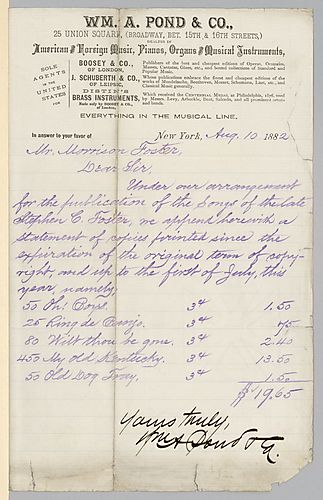 WM. A. POND & CO.,
25 UNION SQUARE, (BROADWAY, BET. 15TH & 16TH STREETS,)
DEALERS IN
American and Foreign Music, Pianos, Organs and Musical Instruments,
SOLE AGENTS IN THE UNITED STATES FOR
BOOSEY & CO.,
OF LONDON,
J. SCHUBERTH & CO.,
OF LEIPSIC,
DISTIN'S
BRASS INSTRUMENTS,
Made only by BOOSEY & CO.,
of London.
Publishers of the best and cheapest editions of Operas, Oratorios, Masses, Cantatas, Glees, etc., and bound collections of Standard and Popular Music.
Whose publications embrace the finest and cheapest editions of the works of Mendelssohn, Beethoven, Mozart, Schumann, Liszt, etc., and Classical Music generally.
Which received the CENTENNIAL MEDAL at Philadelphia, 1876, used by Messrs. Levy, Arbuckle, Bent, Saluoda, and all prominent artists and bands.
EVERYTHING IN THE MUSICAL LINE.
In answer to your favor of
New York, Aug. 10 1882
Mr. Morrison Foster,
Dear Sir,
Under our arrangement
for the publication of the songs of the late
Stephen C. Foster, we append herewith a
statement of copies printed since the
expiration of the original term of copy-
right, and up to the first of July, this
year, namely:
50 Oh! Boys. 3¢ 1.50
25 Ring de Banjo. 3¢ 75
80 Wilt thou be gone. 3¢ 2.40
450 My old Kentucky. 3¢ 13.50
50 Old Dog Tray. 3¢ 1.50
$19.65
Yours truly,
Wm A Pond & Co.